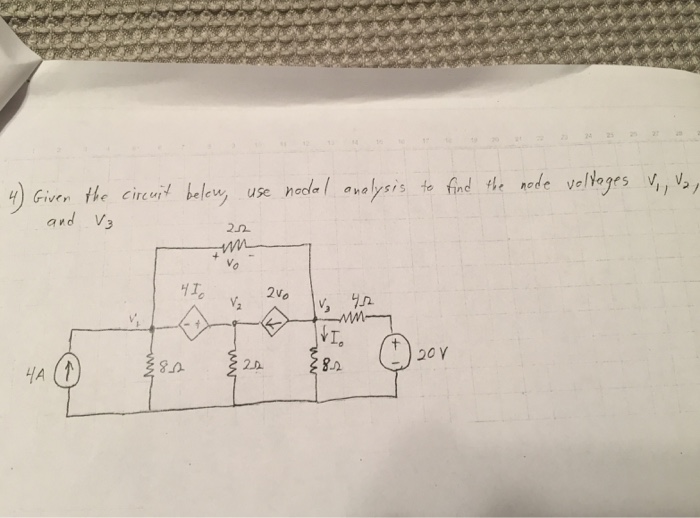 4) Given the circuit below, use nodal analysis to find the node voltages V1, V2,
and V3
2Ω
+ V0 -
4I0
V2
2V0
V1
V3
4Ω
- +
I0
4A
8Ω
2Ω
8Ω
+
-
20V